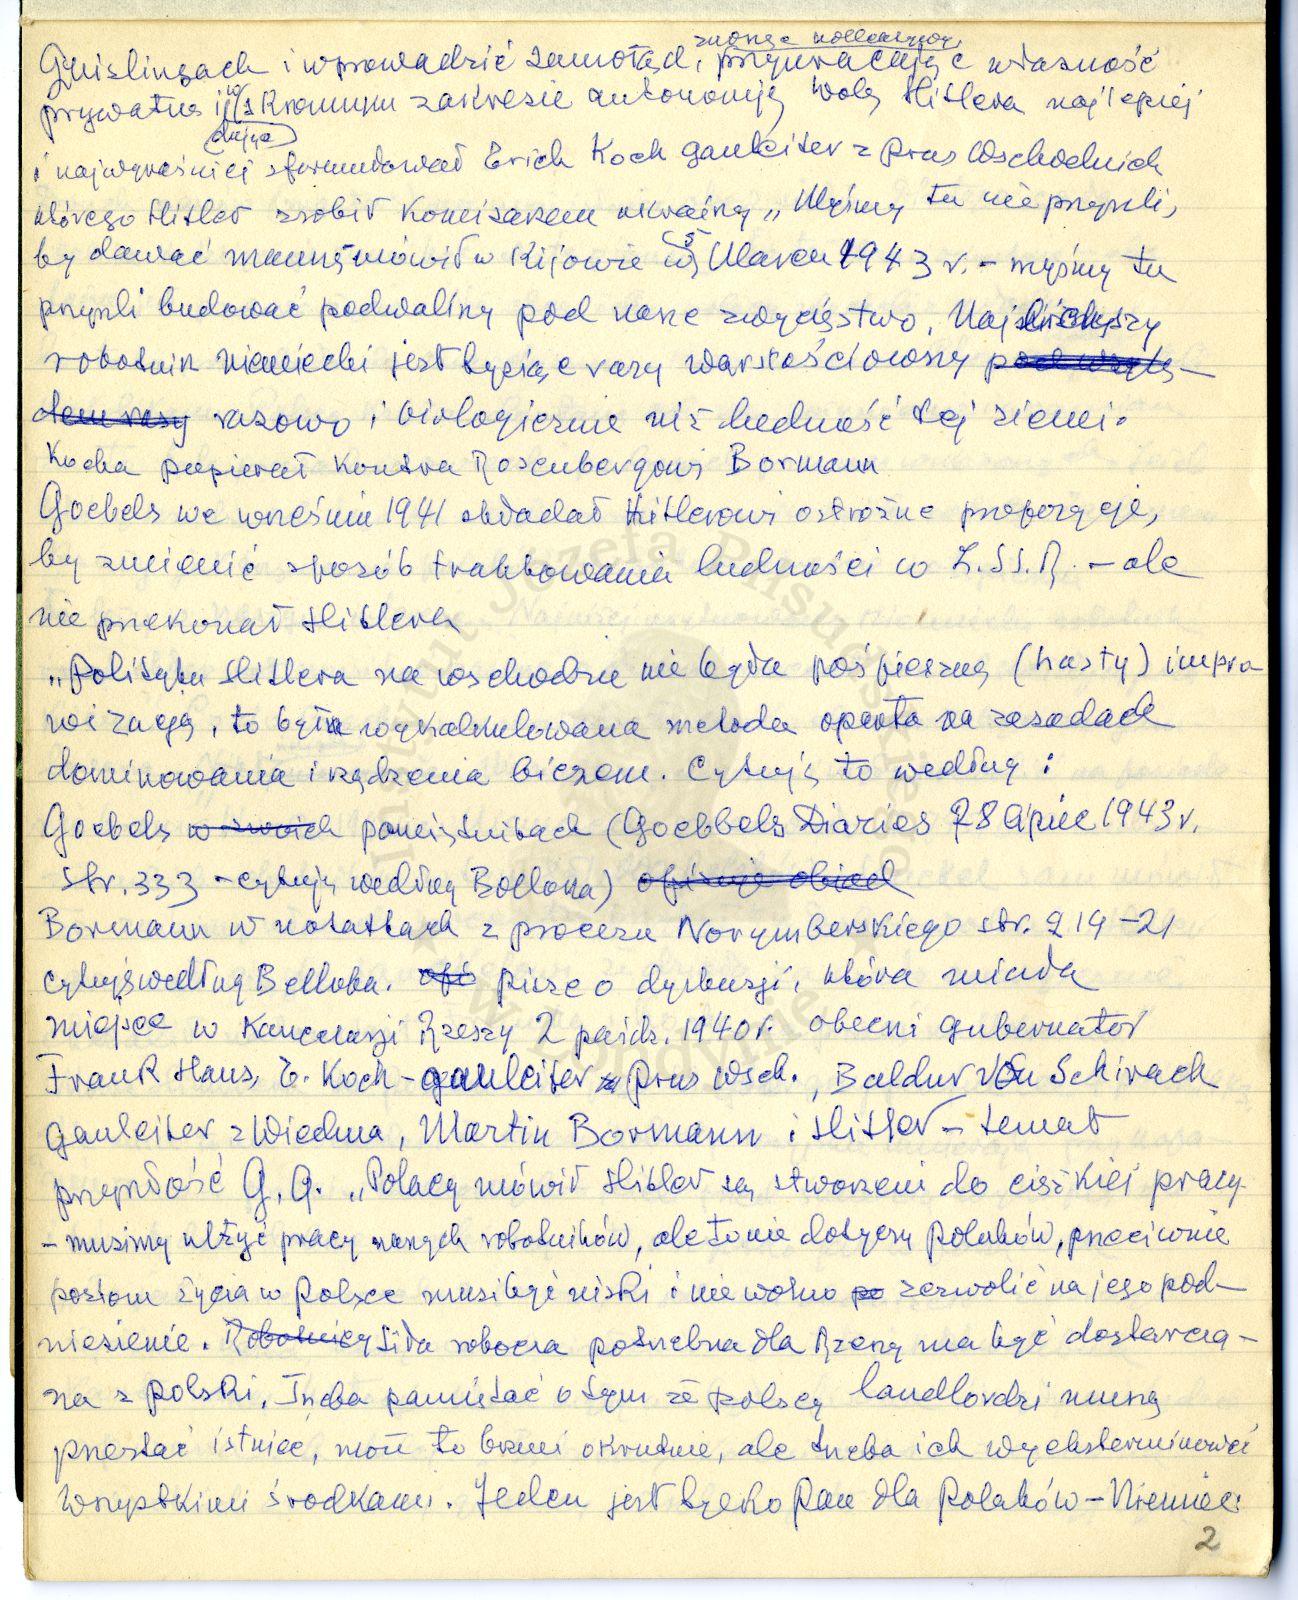 Quislingach i wprowadzić samorząd, znosząc kołchozy, przywracając własność
prywatną i w skromnym zakresie autonomię wolę Hitlera najlepiej
dając
i najwyraźniej sformułował Erich Koch gauleiter z Prus Wschodnich
którego Hitler zrobił Komisarzem Ukrainy „Myśmy tu nie przyszli,
by dawać mannę mówił w Kijowie 5 Marca 1943 r. – myśmy tu
przyszli budować podwaliny pod nasze zwycięstwo. Najlichszy
robotnik niemiecki jest tysiąc razy wartościowszy pod wzglę-
dem rasy rasowo i biologicznie niż ludność tej ziemi.
Kocha popierał kontra Rosenbergowi Bormann
Goebels we wrześniu 1941 składał Hitlerowi ostrożne propozycje,
by zmienić sposób traktowania ludności w Z.SS.R. – ale
nie przekonał Hitlera
„Polityka Hitlera na wschodzie nie była pośpieszną (hasty) impro
wizacją, to była wykalkulowana metoda oparta na zasadach
dominowania i rządzenia biczem. Cytuję to według:
Goebels w swoich pamiętnikach (Goebbels Diaries 28 April 1943 r.
str. 333 – cytuję według Bulloka) opisuje obiad
Bormann w notatkach z procesu Norymberskiego str. 219–21
cytuję według Bulloka. opi pisze o dyskusji, która miała
miejsce w Kancelarji Rzeszy 2 paźdz. 1940 r. obecni gubernator
Frank Hans, E. Koch – gauleiter z Prus Wsch., Baldur von Schirach
gauleiter z Wiednia, Martin Bormann i Hitler – temat
przyszłość G.G. „Polacy mówił Hitler są stworzeni do ciężkiej pracy
– musimy ulżyć pracy naszych robotników, ale to nie dotyczy Polaków, przeciwnie
poziom życia w Polsce musi być niski i nie wolno po zezwolić na jego pod-
niesienie. Robotnicy Siła robocza potrzebna dla Rzeszy ma być dostarcza-
na z Polski. Trzeba pamiętać o tym że polscy landlordzi muszą
przestać istnieć, może to brzmi okrutnie, ale trzeba ich wyeksterminować
wszystkimi środkami. Jeden jest tylko Pan dla Polaków – Niemiec
2
Instytut Józefa Piłsudskiego
w Londynie